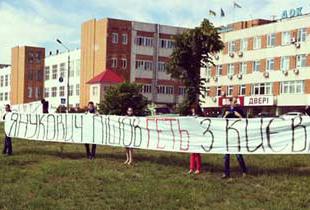 ДОК
ДВЕРІ
ЯНУКОВИЧ ПІШОВ ГЕТЬ З КИЄВА